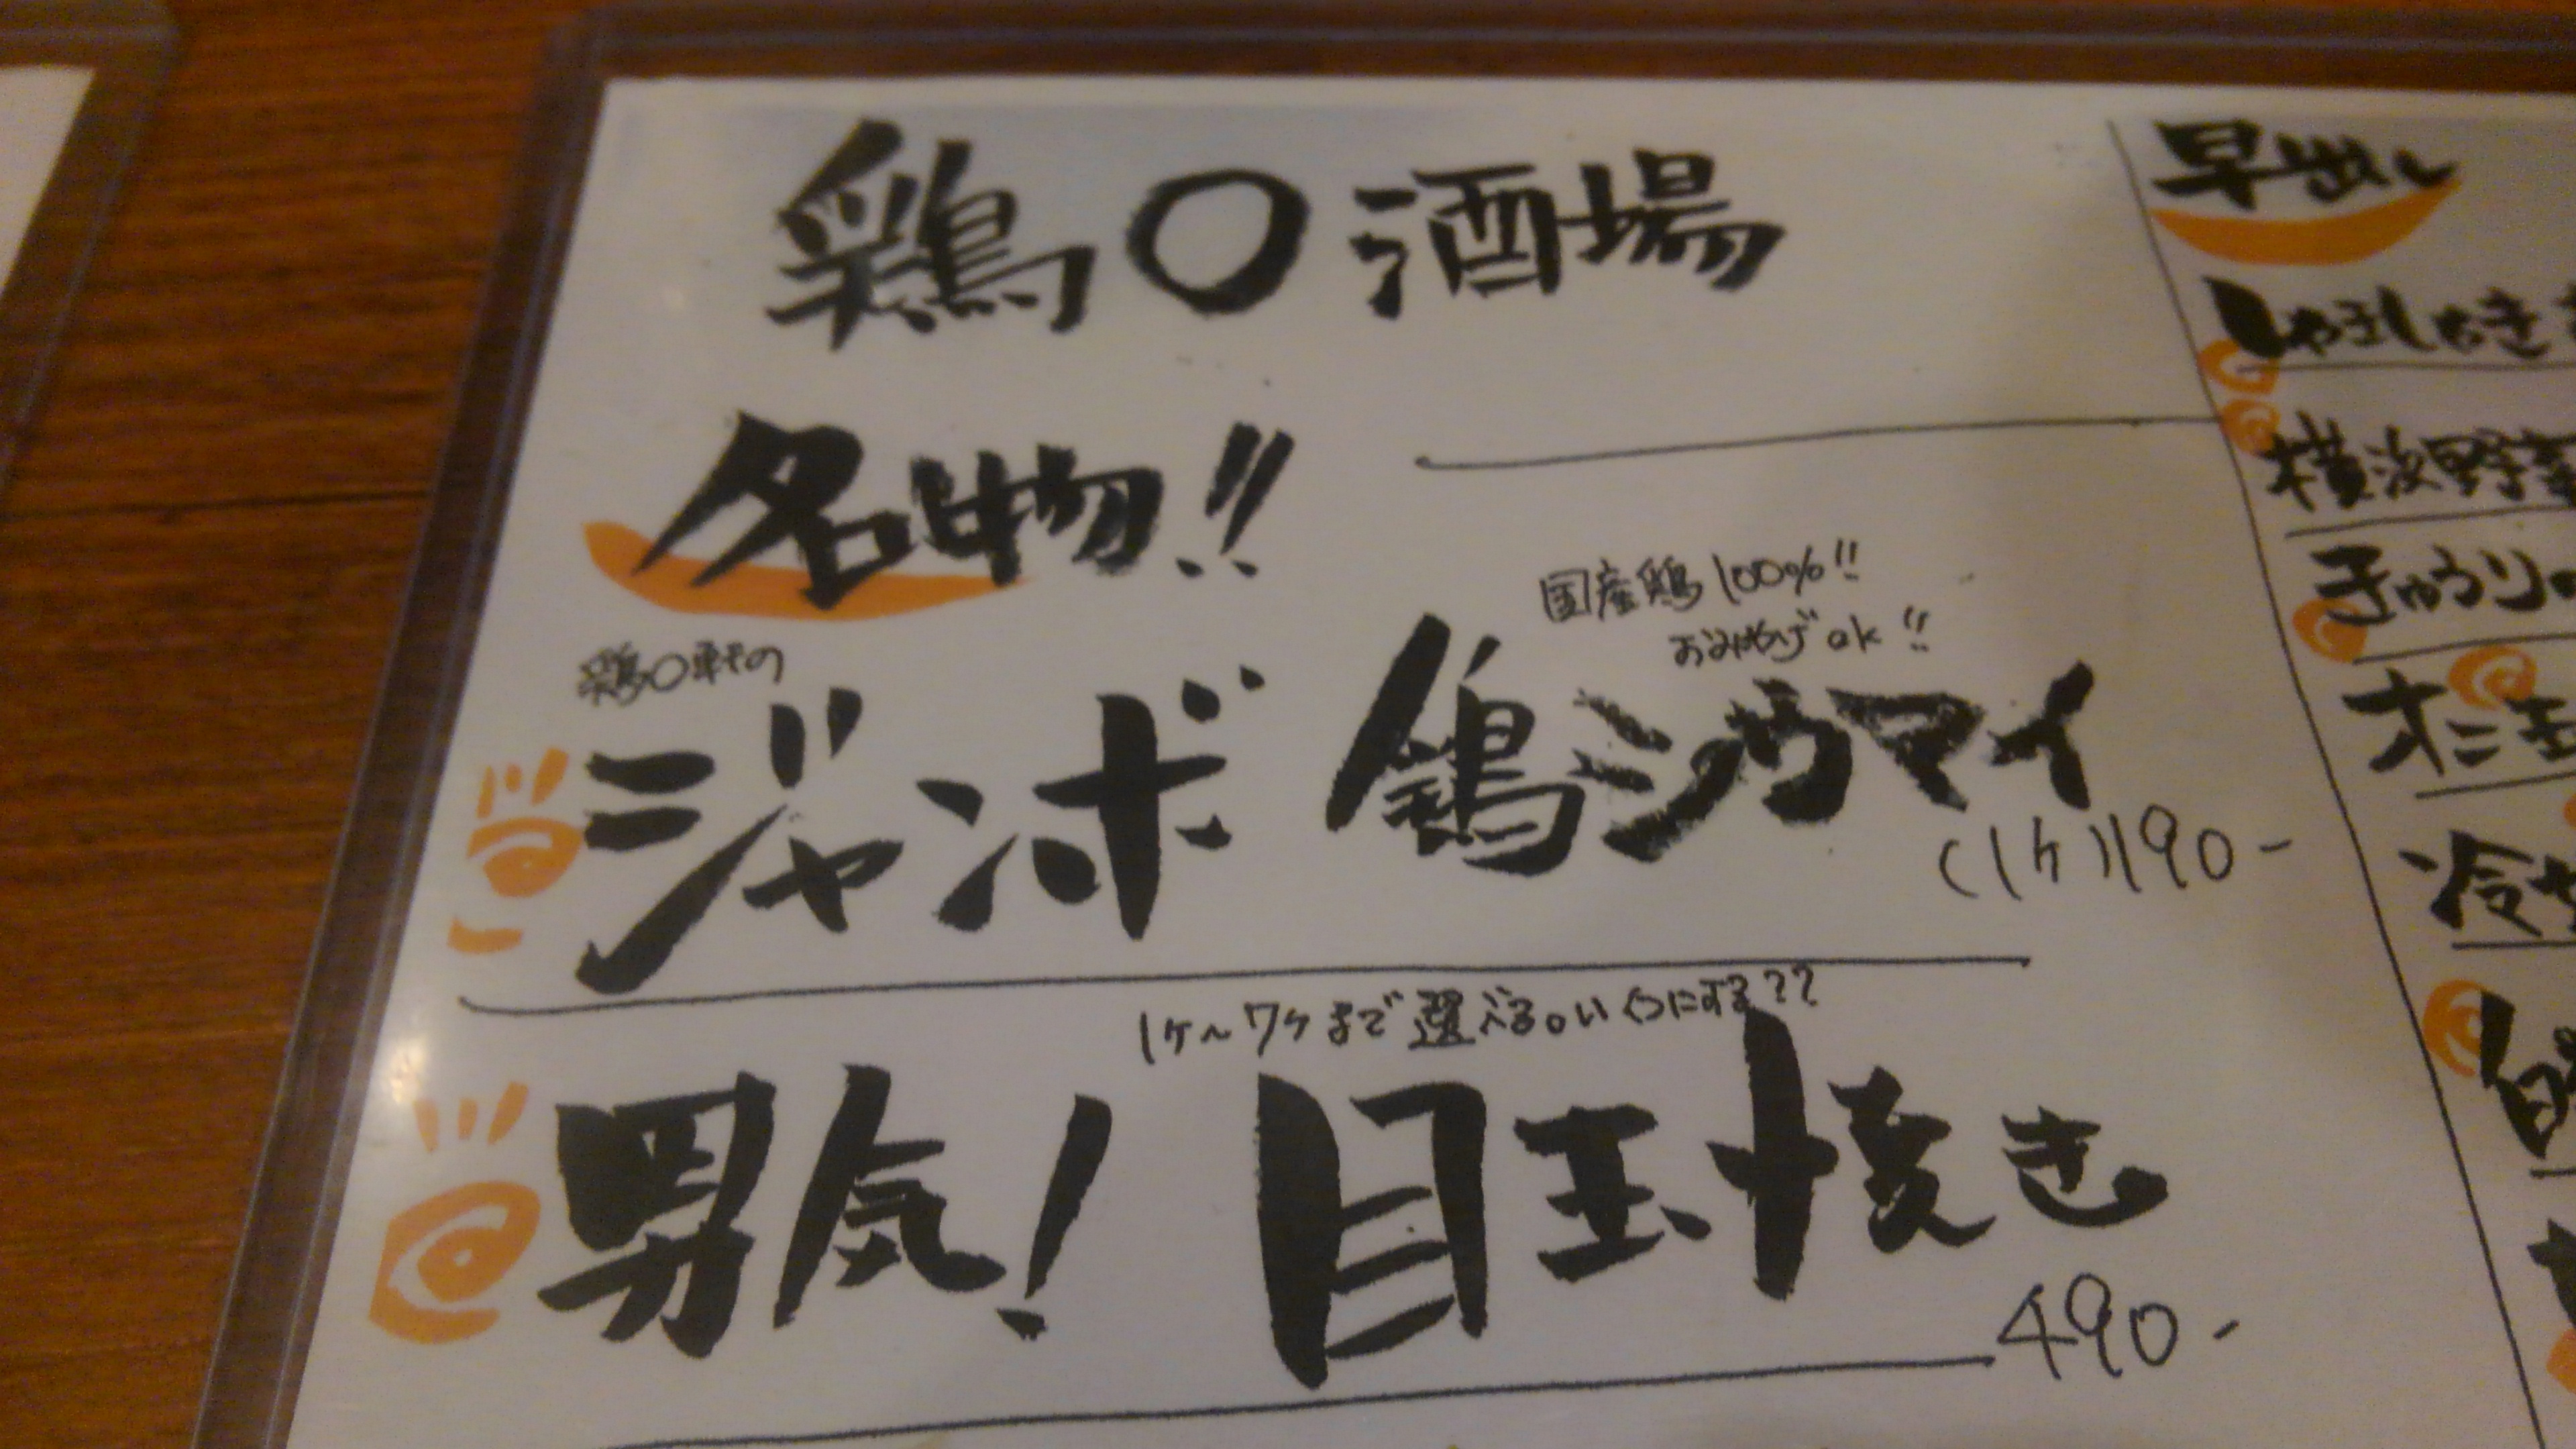 鶏〇酒場
名物!!
国産鶏100%!!
おみやげok!!
鶏〇軒の
ジャンボ 鶏シウマイ
(1ケ)190-
1ケ〜7ケまで選べる。いくつにする??
男気! 目玉焼き
490-
早出し
横浜野菜
きゅうりの
オニ玉
冷や